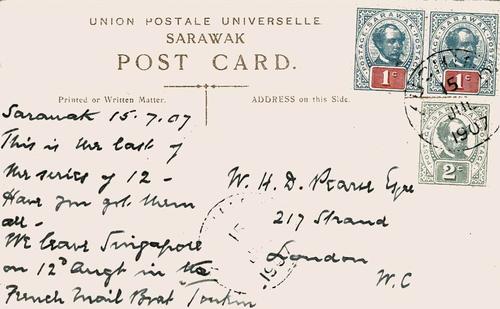 UNION POSTALE UNIVERSELLE
SARAWAK
POST CARD.
Printed or Written Matter.
ADDRESS on this Side.
POSTAGE SARAWAK POSTAGE
1c
POSTAGE SARAWAK POSTAGE
1c
POSTAGE SARAWAK POSTAGE
2c
15
JUL
1907
Sarawak 15.7.07
This is the last of
the series of 12 –
Have you got them
all –
We leave Singapore
on 12th Augt in the
French Mail Boat "Tonkin
W. H. D. Pearse Esqre
217 Strand
London
W.C
1907